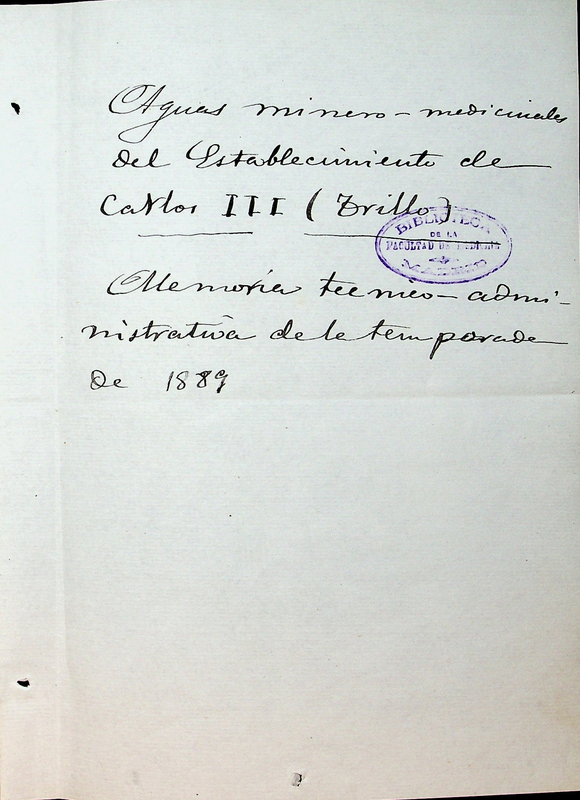 Aguas minero-medicinales
del Establecimiento de
Carlos III (Trillo)
BIBLIOTECA
DE LA
FACULTAD DE MEDICINA
MADRID
Memoria tecnico-admi-
nistrativa de la temporada
de 1889